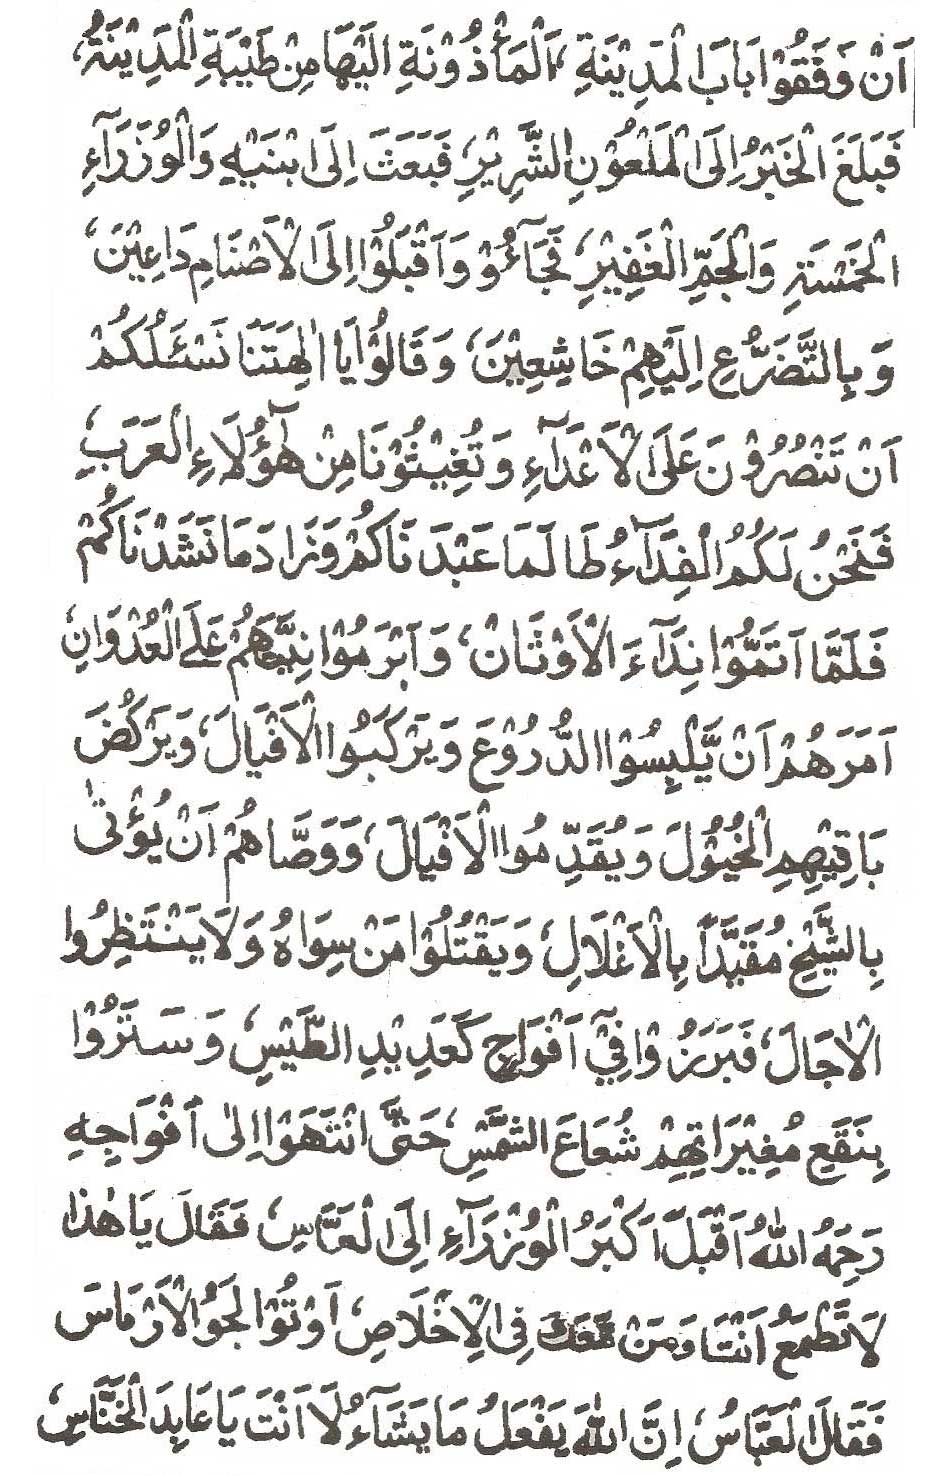 اَنْ وَقَفُوْا بَابَ الْمَدِيْنَةِ، اَلْمَأْذُوْنَةِ اِلَيْهَا مِنْ طَيْبَةِ الْمَدِيْنَةُ،
فَبَلَغَ الْخَبَرُ اِلَى الْمَلْعُوْنِ الشَّرِيْرِ، فَبَعَثَ اِلَى ابْنَيْهِ وَالْوُزَرَآءِ
الْخَمْسَةِ وَالْجَمِّ الْغَفِيْرِ، فَجَآءُوْ وَاَقْبَلُوْا اِلَى الْاَصْنَامِ دَاعِيْنَ،
وَبِالتَّضَرُّعِ اِلَيْهِمْ خَاشِعِيْنَ، وَقَالُوْا يَا اٰلِهَتَنَا نَسْئَلُكُمْ
اَنْ تَنْصُرُوْنَ عَلَى الْاَعْدَآءِ وَتُغِيْثُوْنَا مِنْ هٰٓؤُلَاءِ الْعَرَبِ،
فَنَحْنُ لَكُمُ الْفِدَآءُ طَا لَمَا عَبَدْنَاكُمْ وَنَرَا دَمَا نَشَدْنَاكُمْ
فَلَمَّا اَتَمُّوْا نِدَآءَ الْاَوْثَانْ، وَاَبْرَمُوْا نِيَّتَهُمْ عَلَى الْعُدْوَانِ،
اَمَرَهُمْ اَنْ يَّلْبِسُوْا الدُّرُوْعَ وَيَرْكَبُوا الْاَفْيَالَ، وَيَرْكُضَ
بَاقِيْهِمِ الْخُيُوْلَ وَيُقَدِّمُوا الْاَفْيَالَ، وَوَصَّاهُمْ اَنْ يُؤْتٰى
بِالشَّيْخِ مُقَيَّدًا بِالْاَغْلَالِ، وَيَقْتُلُوْا مَنْ سِوَاهُ وَلَا يَنْتَظِرُوا
الْاٰجَالَ، فَبَرَزُوْا فِيْٓ اَفْوَاجٍ كَعَدِيْدِ الطَّيْسِ، وَسَتَرُوْا
بِنَقَعِ مُغِيْرَاتِهِمْ شُعَاعَ الشَّمْسِ، حَتّٰى انْتَهَوْا اِلٰى اَفْوَاجِهِ
رَحِمَهُ اللّٰهُ اَقْبَلَ اَكْبَرُ الْوُزَرَآءِ اِلَى الْعَبَّاسِ، فَقَالَ يَا هٰذَا
لَا تَطْمَعُ اَنْتَا وَمَنْ مَعَكَ فِى الْاِخْلَاصِ، اَوْ تُوْا لِجَوِّ الْاَرْمَاسَ
فَقَالَ الْعَبَّاسُ، اِنَّ اللّٰهَ يَفْعَلُ مَا يَشَآءُ لَا اَنْتَ يَا عَابِدَ الْخَنَّاسِ،